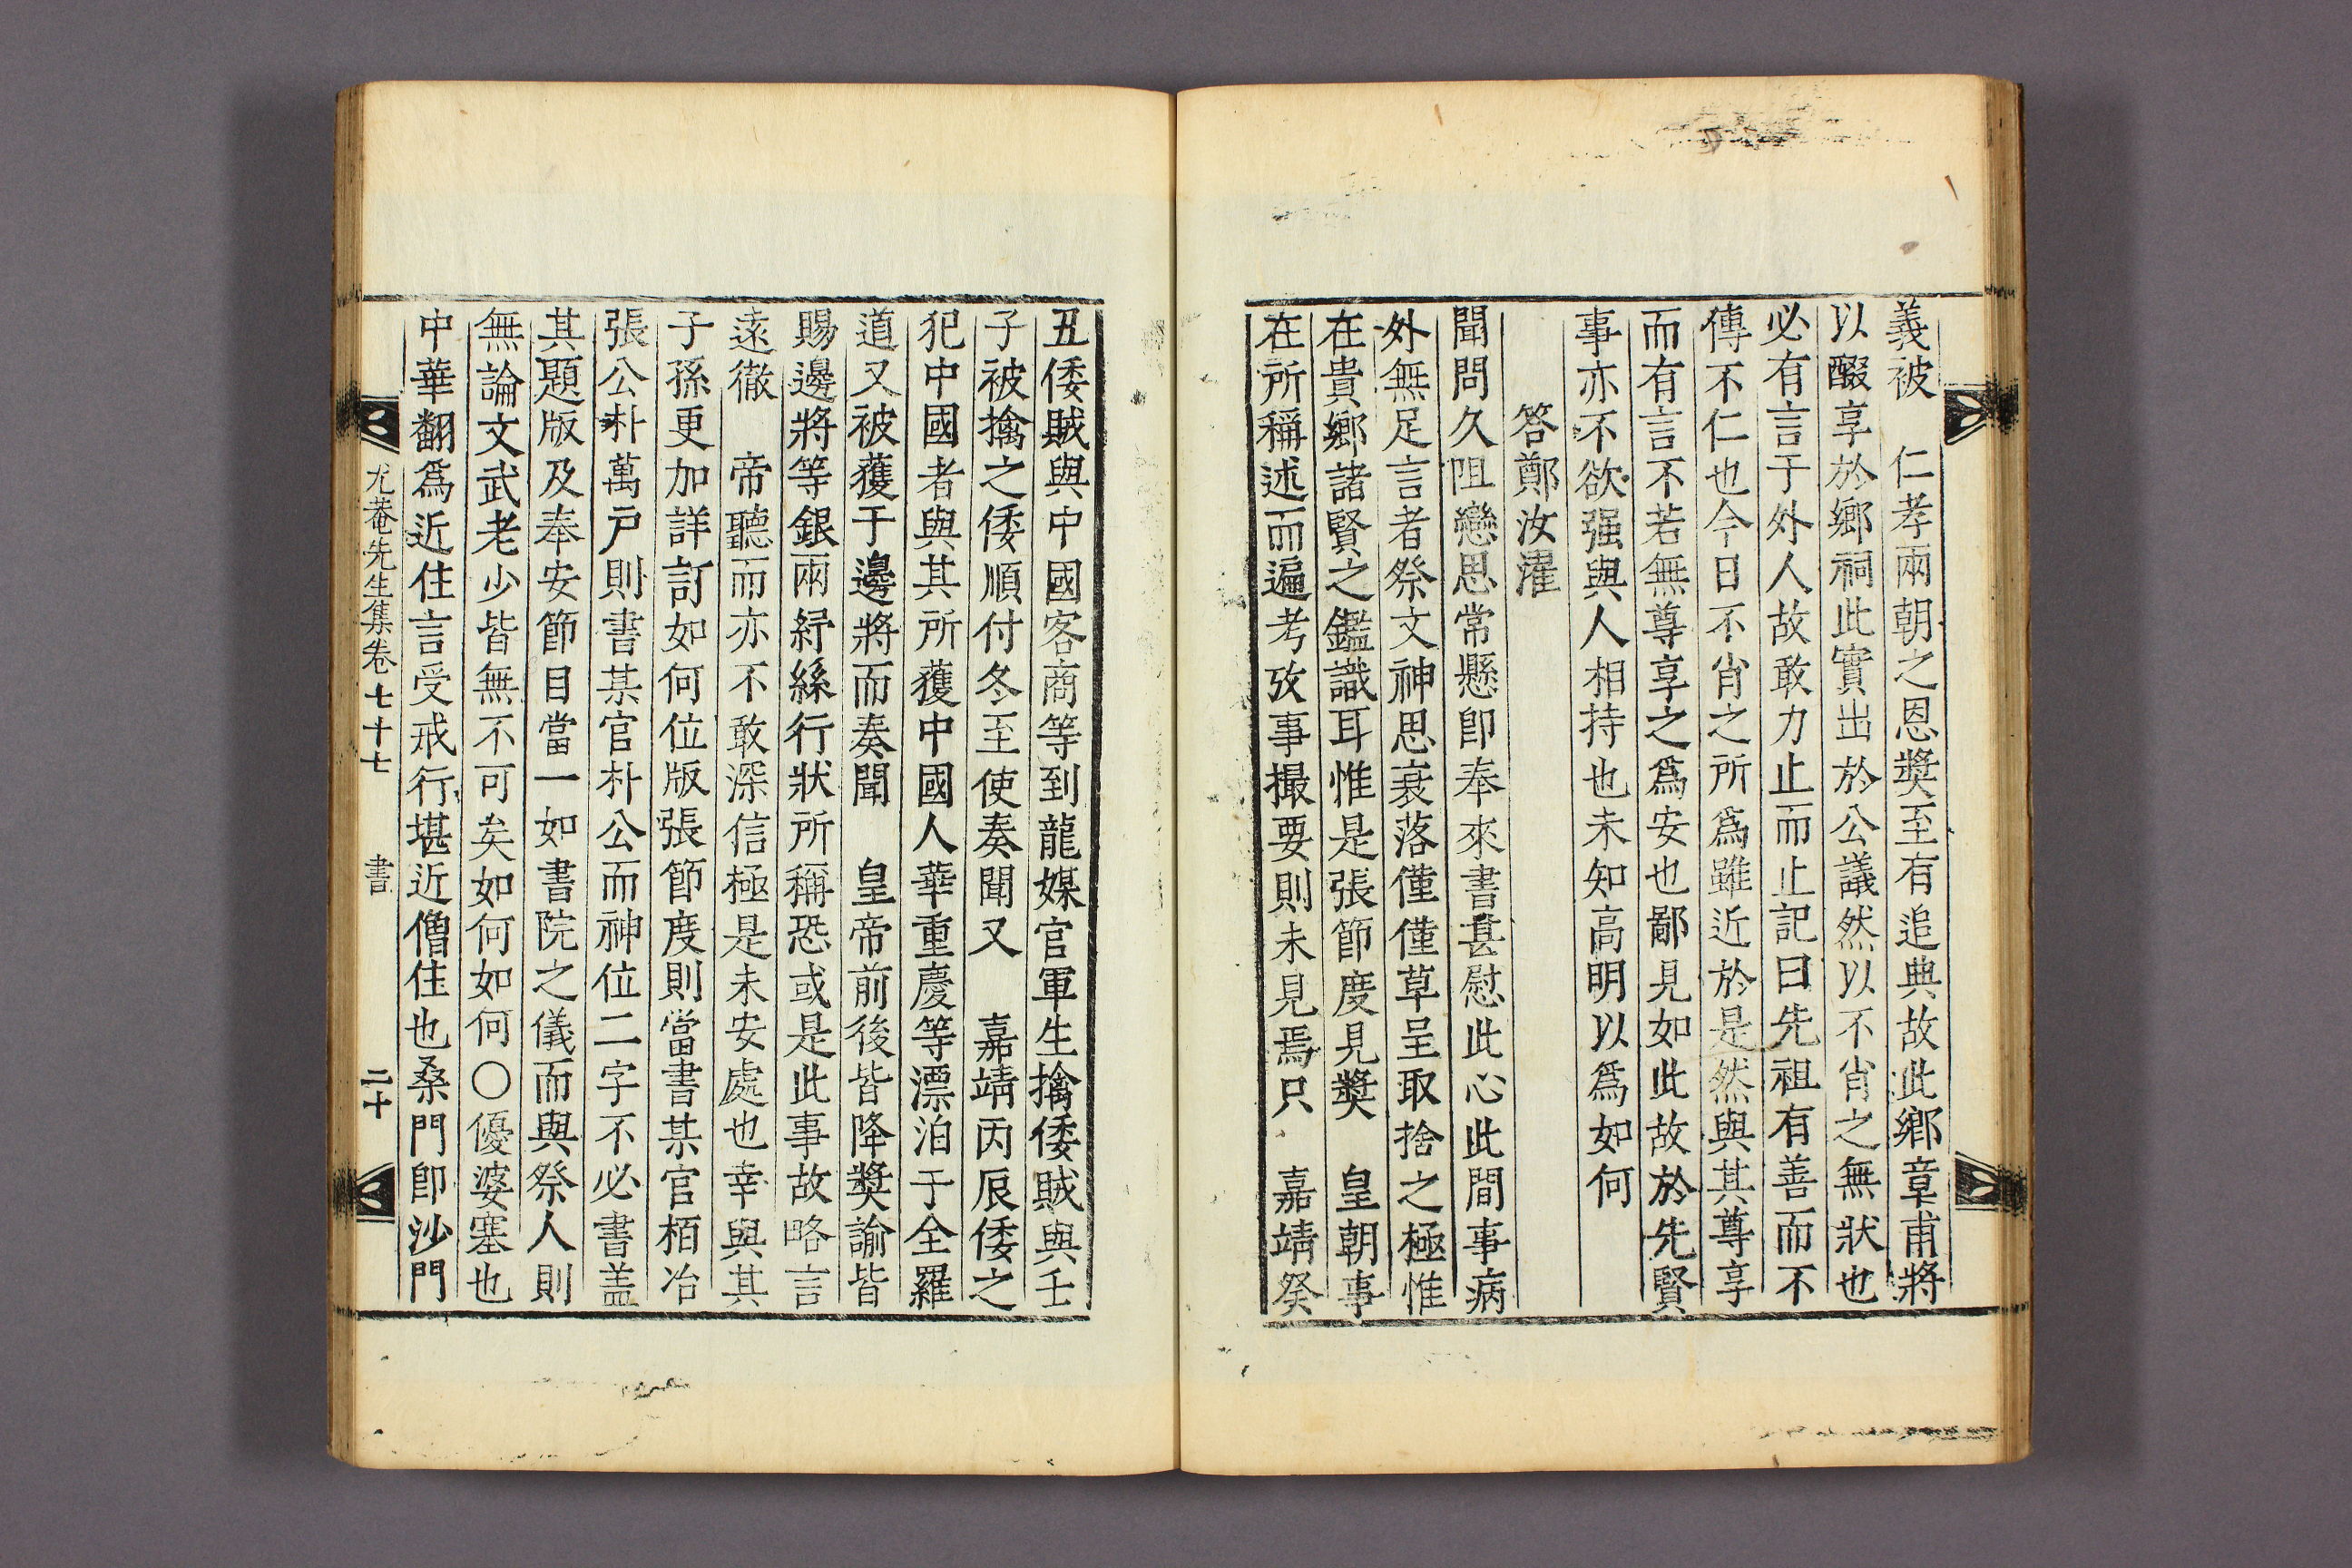 義被　仁孝兩朝之恩奬至有追典故此鄕章甫將
以醊享於鄕祠此實出於公議然以不肖之無狀也
必有言于外人故敢力止而止記曰先祖有善而不
傳不仁也今日不肖之所爲雖近於是然與其尊享
而有言不若無尊享之爲安也鄙見如此故於先賢
事亦不欲强與人相持也未知高明以爲如何
答鄭汝濯
聞問久阻戀思常懸卽奉來書甚慰此心此間事病
外無足言者祭文神思衰落僅僅草呈取捨之極惟
在貴鄕諸賢之鑑識耳惟是張節度見奬　皇朝事
在所稱述而遍考攷事撮要則未見焉只　嘉靖癸
丑倭賊與中國客商等到龍媒官軍生擒倭賊與壬
子被擒之倭順付冬至使奏聞又　嘉靖丙辰倭之
犯中國者與其所獲中國人華重慶等漂泊于全羅
道又被獲于邊將而奏聞　皇帝前後皆降奬諭皆
賜邊將等銀兩紵絲行狀所稱恐或是此事故略言
遠徹　帝聽而亦不敢深信極是未安處也幸與其
子孫更加詳訂如何位版張節度則當書某官栢冶
張公朴萬戶則書某官朴公而神位二字不必書盖
其題版及奉安節目當一如書院之儀而與祭人則
無論文武老少皆無不可矣如何如何〇優婆塞也
中華翻爲近住言受戒行堪近僧住也桑門卽沙門
尤菴先生集卷七十七　書　二十